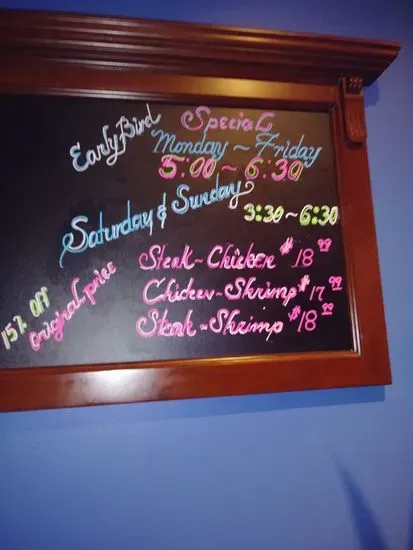 Early Bird Special
Monday ~ Friday
5:00 ~ 6:30
Saturday & Sunday
3:30 ~ 6:30
Steak ~ Chicken $18.99
Chicken ~ Shrimp $17.99
Steak ~ Shrimp $18.99
15% Off
original price